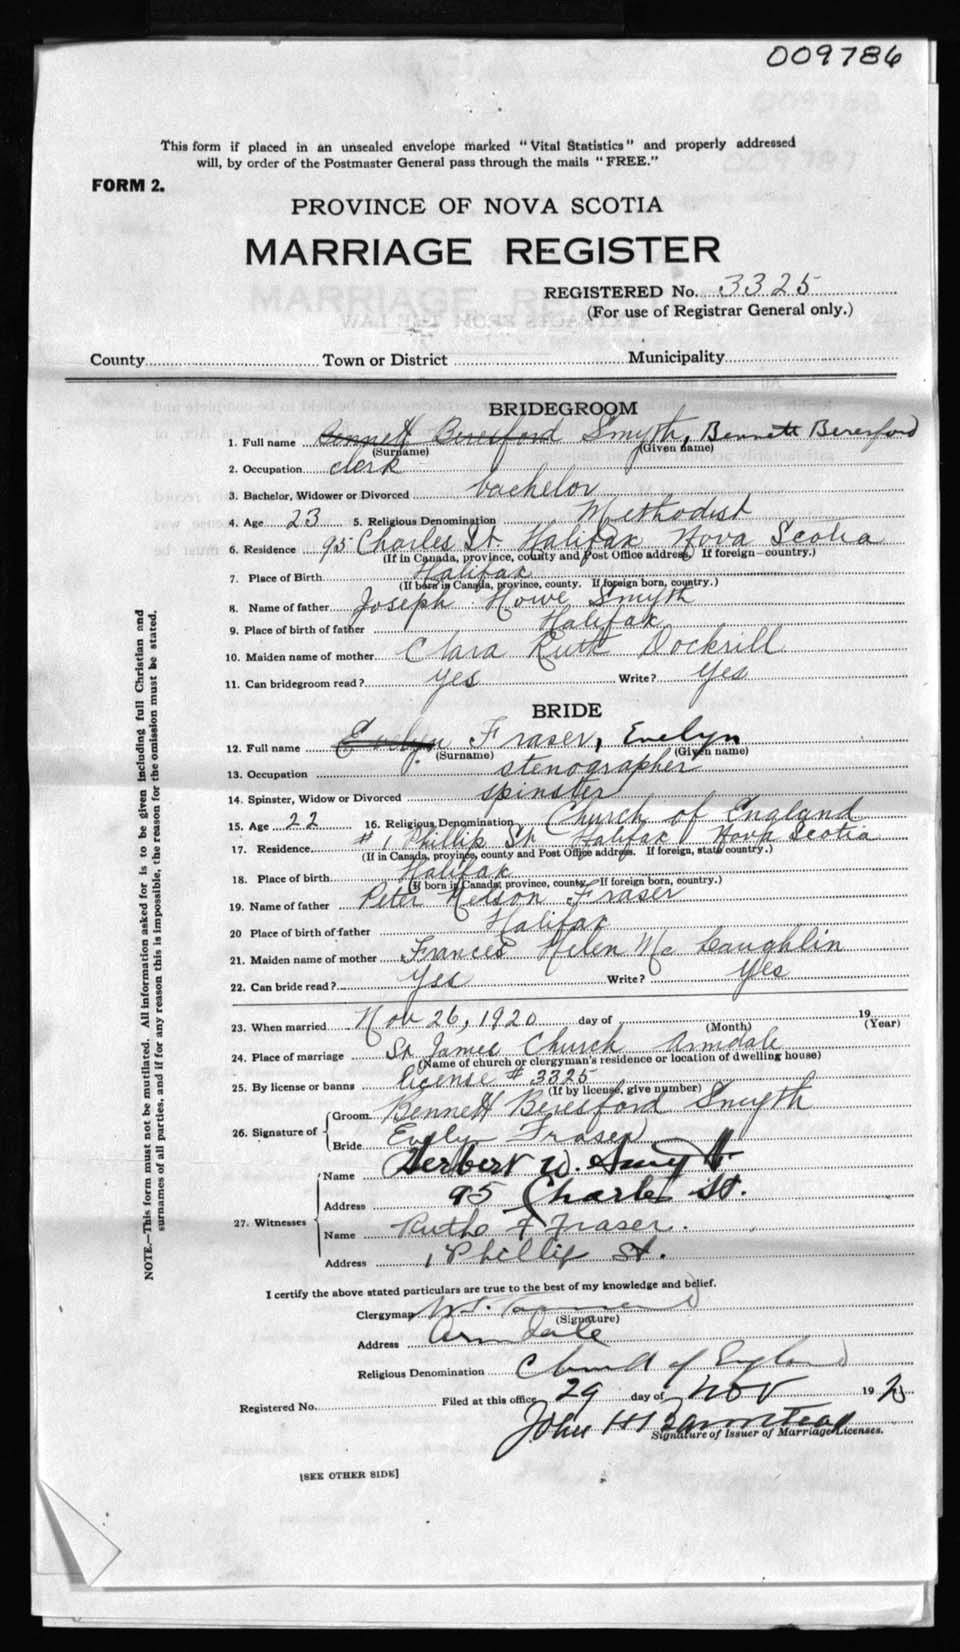 009786
This form if placed in an unsealed envelope marked "Vital Statistics" and properly addressed
will, by order of the Postmaster General pass through the mails "FREE."
FORM 2.
PROVINCE OF NOVA SCOTIA
MARRIAGE REGISTER
REGISTERED No. 3325
(For use of Registrar General only.)
County Town or District Municipality
BRIDEGROOM
1. Full name Bennett Beresford Smyth, Bennett Beresford
(Surname) (Given name)
2. Occupation clerk
3. Bachelor, Widower or Divorced bachelor
4. Age 23 5. Religious Denomination Methodist
6. Residence 95 Charles St. Halifax Nova Scotia
(If in Canada, province, county and Post Office address. If foreign—country.)
7. Place of Birth Halifax
(If born in Canada, province, county. If foreign born, country.)
8. Name of father Joseph Howe Smyth
9. Place of birth of father Halifax
10. Maiden name of mother Clara Ruth Dockrill
11. Can bridegroom read? yes Write? yes
BRIDE
12. Full name Evelyn Fraser, Evelyn
(Surname) (Given name)
13. Occupation stenographer
14. Spinster, Widow or Divorced spinster
15. Age 22 16. Religious Denomination Church of England
17. Residence # 1 Phillip St Halifax Nova Scotia
(If in Canada, province, county and Post Office address. If foreign, state country.)
18. Place of birth Halifax
(If born in Canada, province, county. If foreign born, country.)
19. Name of father Peter Nelson Fraser
20 Place of birth of father Halifax
21. Maiden name of mother Frances Helen McLaughlin
22. Can bride read? Yes Write? yes
23. When married Nov 26, 1920 day of 19
(Month) (Year)
24. Place of marriage St James Church Armdale
(Name of church or clergyman's residence or location of dwelling house)
25. By license or banns license # 3325
(If by license, give number)
26. Signature of Groom Bennett Beresford Smyth
Bride Evelyn Fraser
27. Witnesses Name Herbert W. Smyth
Address 95 Charles St.
Name Ruth F Fraser.
Address 1 Phillip St.
I certify the above stated particulars are true to the best of my knowledge and belief.
Clergyman
(Signature)
Address Armdale
Religious Denomination Church of England
Registered No. Filed at this office 29 day of Nov 1920
John H Barnstead
Signature of Issuer of Marriage Licenses.
[SEE OTHER SIDE]
NOTE.—This form must not be mutilated. All information asked for is to be given including full Christian and
surnames of all parties, and if for any reason this is impossible, the reason for the omission must be stated.